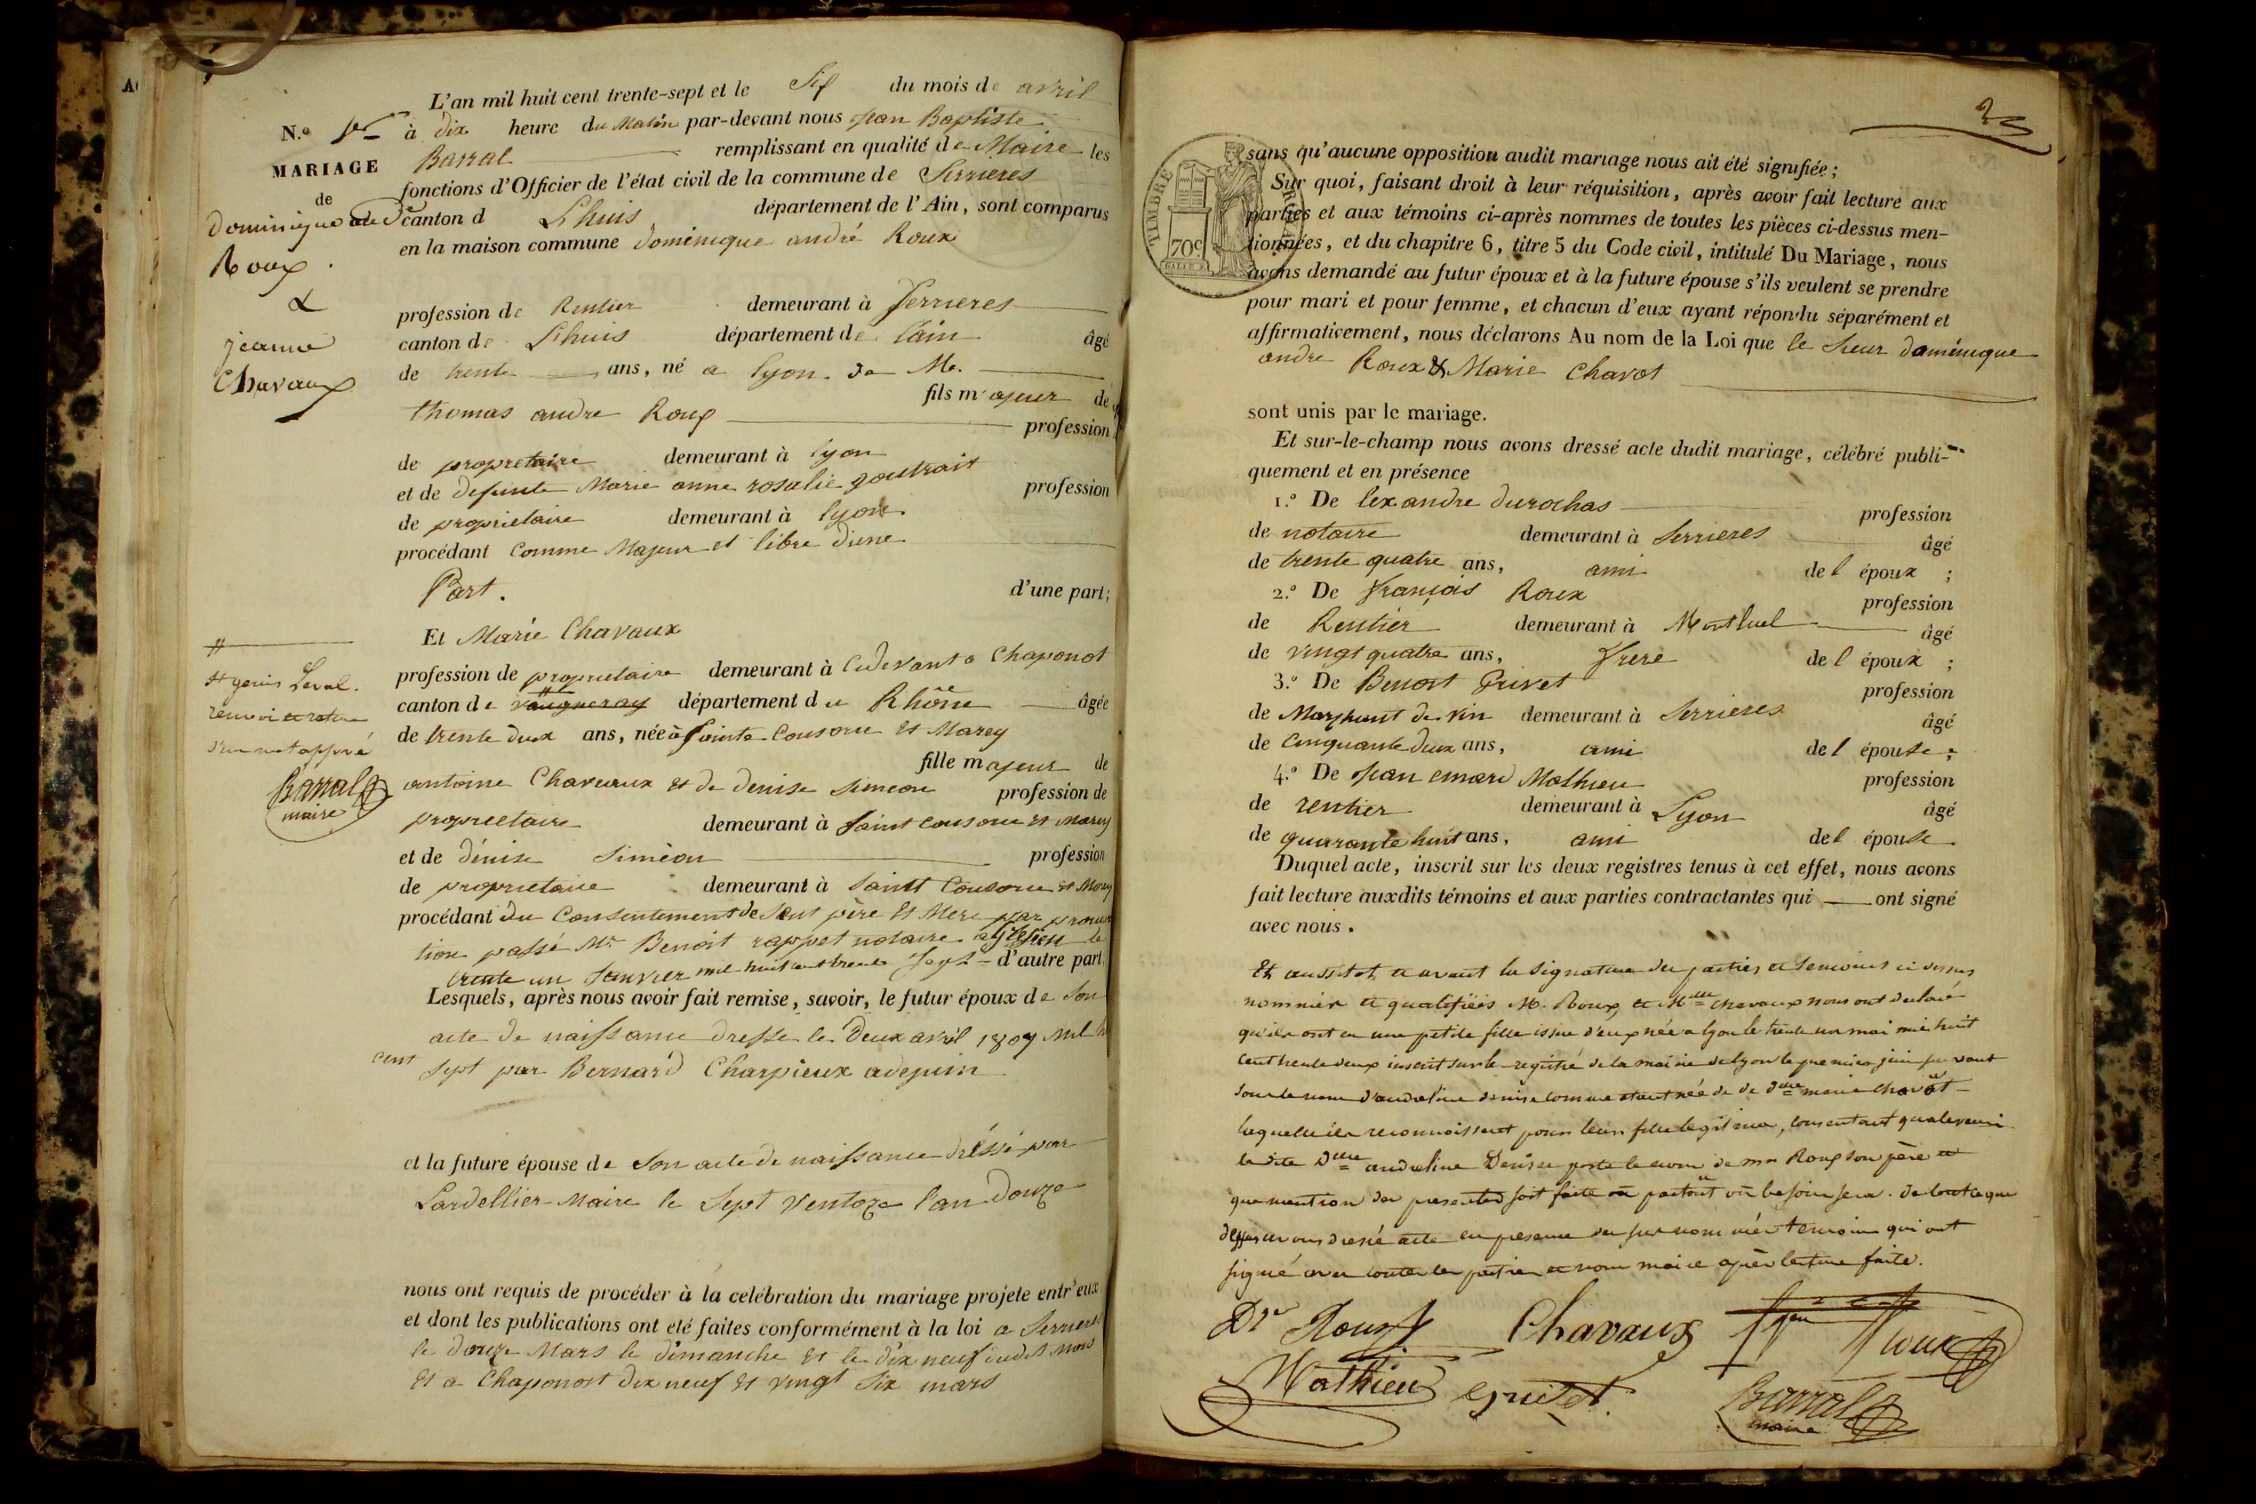 L'an mil huit cent trente-sept et le Six du mois de avril
N.o 1er à dix heure du Matin par-devant nous jean Baptiste
MARIAGE
Barral remplissant en qualité de Maire les
fonctions d'Officier de l'état civil de la commune de Serrieres
de
Dominique andré
canton d Lhuis département de l'Ain, sont comparus
en la maison commune doménique andré Roux
Roux
&
jeanne
Chavaux
profession de Rentier demeurant à Serrieres
canton de Lhuis département de lain âgé
de trente ans, né a lyon
fils majeur de
thomas andre Roux profession
de propretaire demeurant à lyon
et de defunte Marie anne rosalie profession
de proprietaire demeurant à lyon
procédant comme Majeur et libre d'une
Part. d'une part;
Et Marie Chavaux
profession de proprietaire demeurant à Cidevant a Chaponot
canton de vaugneray département du Rhône âgée
de trente deux ans, née à Sainte Consorce et Marcy
fille majeur de
st genis Laval.
renvoi et rature
d'un mot appvé
Barral
maire
antoine Chavaux et de denise simeon profession de
proprietaire demeurant à Saint Consorce et Marcy
et de dénise Siméon profession
de proprietaire demeurant à Saint Consorce et Marcy
procédant du Consentement de Seus père et Mere par procura
tion passé Mr Benoit notaire le
trente un Janvier mil huit cent trente Sept d'autre part.
Lesquels, après nous avoir fait remise, savoir, le futur époux de Son
acte de naissance dresse le deux avril 1807 Mil h
cent sept par Bernard Charpieux
et la future épouse de Son acte de naissance dréssé par
Lardellier Maire le Sept Ventoze l'an Douze
nous ont requis de procéder à la celébration du mariage projete entr'eux
et dont les publications ont eté faites conformément à la loi a Serrieres
le douze Mars le dimanche et le dix neuf dudit Mois
et a Chaponost dix neuf et vingt Six mars
23
TIMBRE ROYAL
70c
sans qu'aucune opposition audit mariage nous ait été signifiée;
Sur quoi, faisant droit à leur réquisition, après avoir fait lecture aux
parties et aux témoins ci-après nommes de toutes les pièces ci-dessus men-
tionnées, et du chapitre 6, titre 5 du Code civil, intitulé Du Mariage, nous
avons demandé au futur époux et à la future épouse s'ils veulent se prendre
pour mari et pour femme, et chacun d'eux ayant répondu séparément et
affirmativement, nous déclarons Au nom de la Loi que le Sieur doménique
andre Roux & Marie Chavot
sont unis par le mariage.
Et sur-le-champ nous avons dressé acte dudit mariage, célébré publi-
quement et en présence
1.o De lexandre durochas profession
de notaire demeurant à Serrieres âgé
de trente quatre ans, ami de l époux ;
2.o De François Roux profession
de Rentier demeurant à Montluel âgé
de vingt quatre ans, frere de l époux ;
3.o De Benoit Grivet profession
de Marchant de vin demeurant à Serrieres âgé
de cinquante deux ans, ami de l épouse ;
4.o De Jean emard Mathieu profession
de rentier demeurant à Lyon âgé
de quarrante huit ans, ami de l épouse
Duquel acte, inscrit sur les deux registres tenus à cet effet, nous avons
fait lecture auxdits témoins et aux parties contractantes qui ont signé
avec nous.
Et aussitot et avant la signature des parties et temoins ci dessus
nommés et qualifiés M. Roux et Mdelle chavaux nous ont declaré
qu'ils ont eu une petite fille issue d'eux née a lyon le trente un mai mil huit
cent trente deux inscrit sur le registre de la mairie de lyon le premier juin suivant
sous le nom d'andreline denise comme etant née de de Delle marie chavot
laquelle ils reconnoissent pour leur fille legitime, consentant qu'a l'avenir
la dite Delle andreline Denise porte le nom de mr Roux son père et
que mention des presentes soit faite où partout où besoin sera. de tout ce que
dessus avons dressé acte en presence des sus nommés temoins qui ont
signé avec toutes les parties et nous maire après lecture faite.
Dque Roux Chavaux fçois Roux
Mathieu grivet Barral
maire